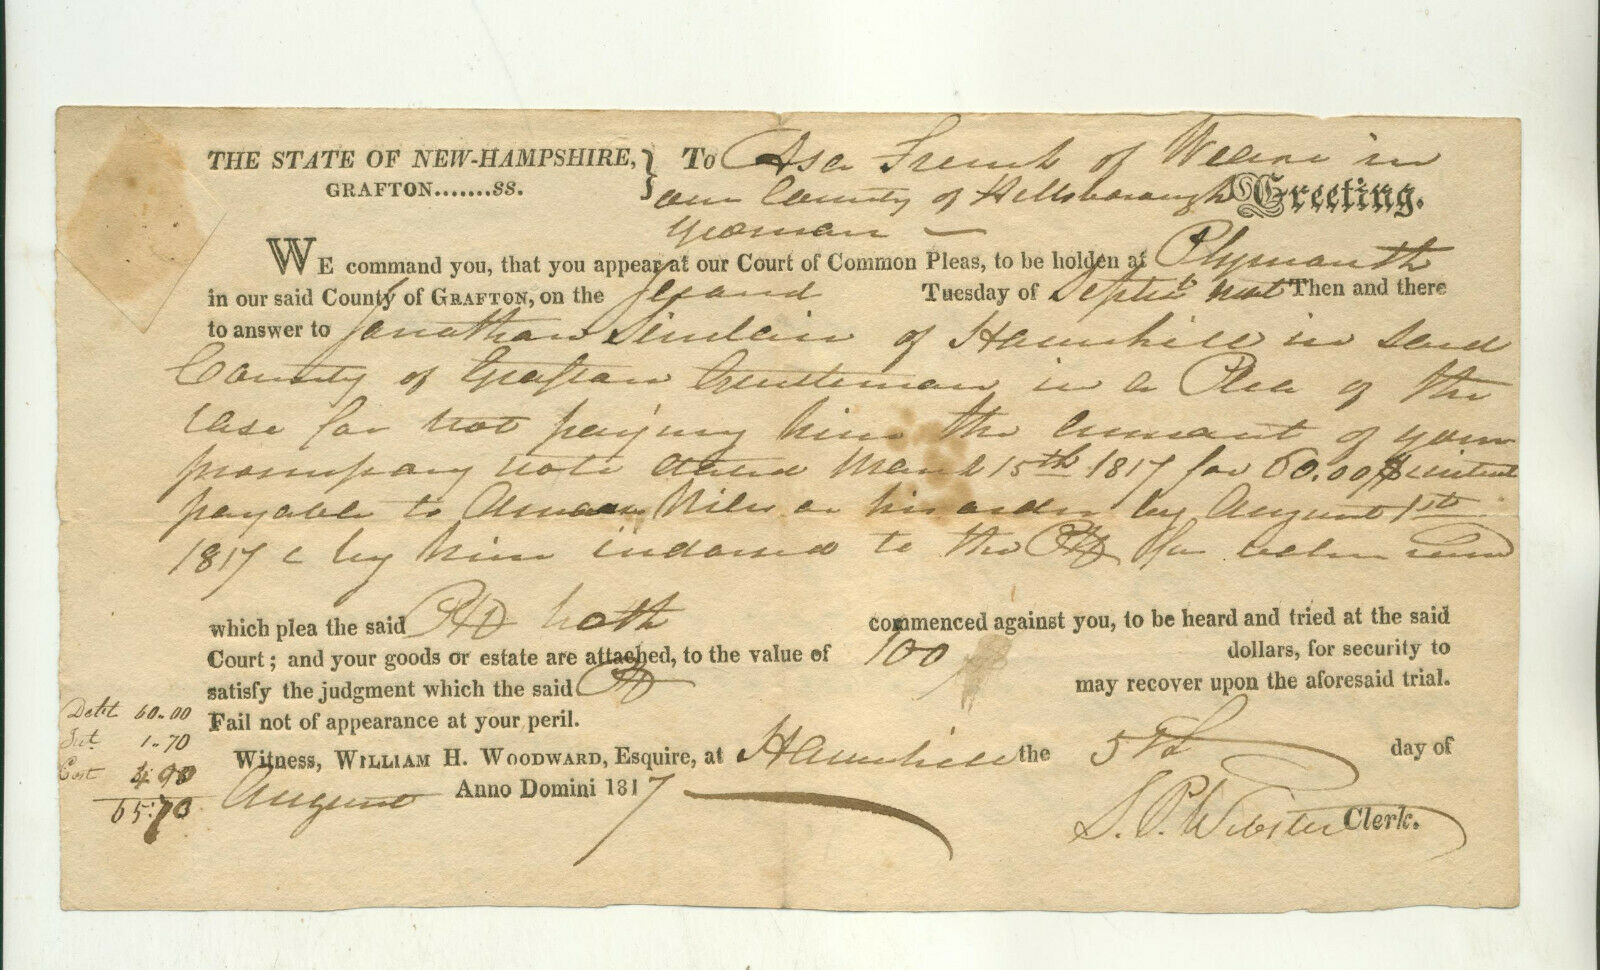 THE STATE OF NEW-HAMPSHIRE, } To Asa French of Weare in
GRAFTON.......ss. our County of Hillsborough Greeting.
yeoman —
WE command you, that you appear at our Court of Common Pleas, to be holden at Plymouth
in our said County of GRAFTON, on the second Tuesday of Septr next Then and there
to answer to Jonathan Sinclair of Haverhill in said
County of Grafton Gentleman in a Plea of the
case for not paying him the amount of your
promissory note dated March 15th 1817 for 60.00$
payable to Niles or his order by August 1st
1817 & by him indorsed to the Plf for value
which plea the said Plf hath commenced against you, to be heard and tried at the said
Court; and your goods or estate are attached, to the value of 100 dollars, for security to
satisfy the judgment which the said Plf may recover upon the aforesaid trial.
Fail not of appearance at your peril.
Witness, WILLIAM H. WOODWARD, Esquire, at Haverhill the 5th day of
August Anno Domini 1817
S. P. Webster Clerk.
Debt 60.00
Int. 1.70
Cost
65.70